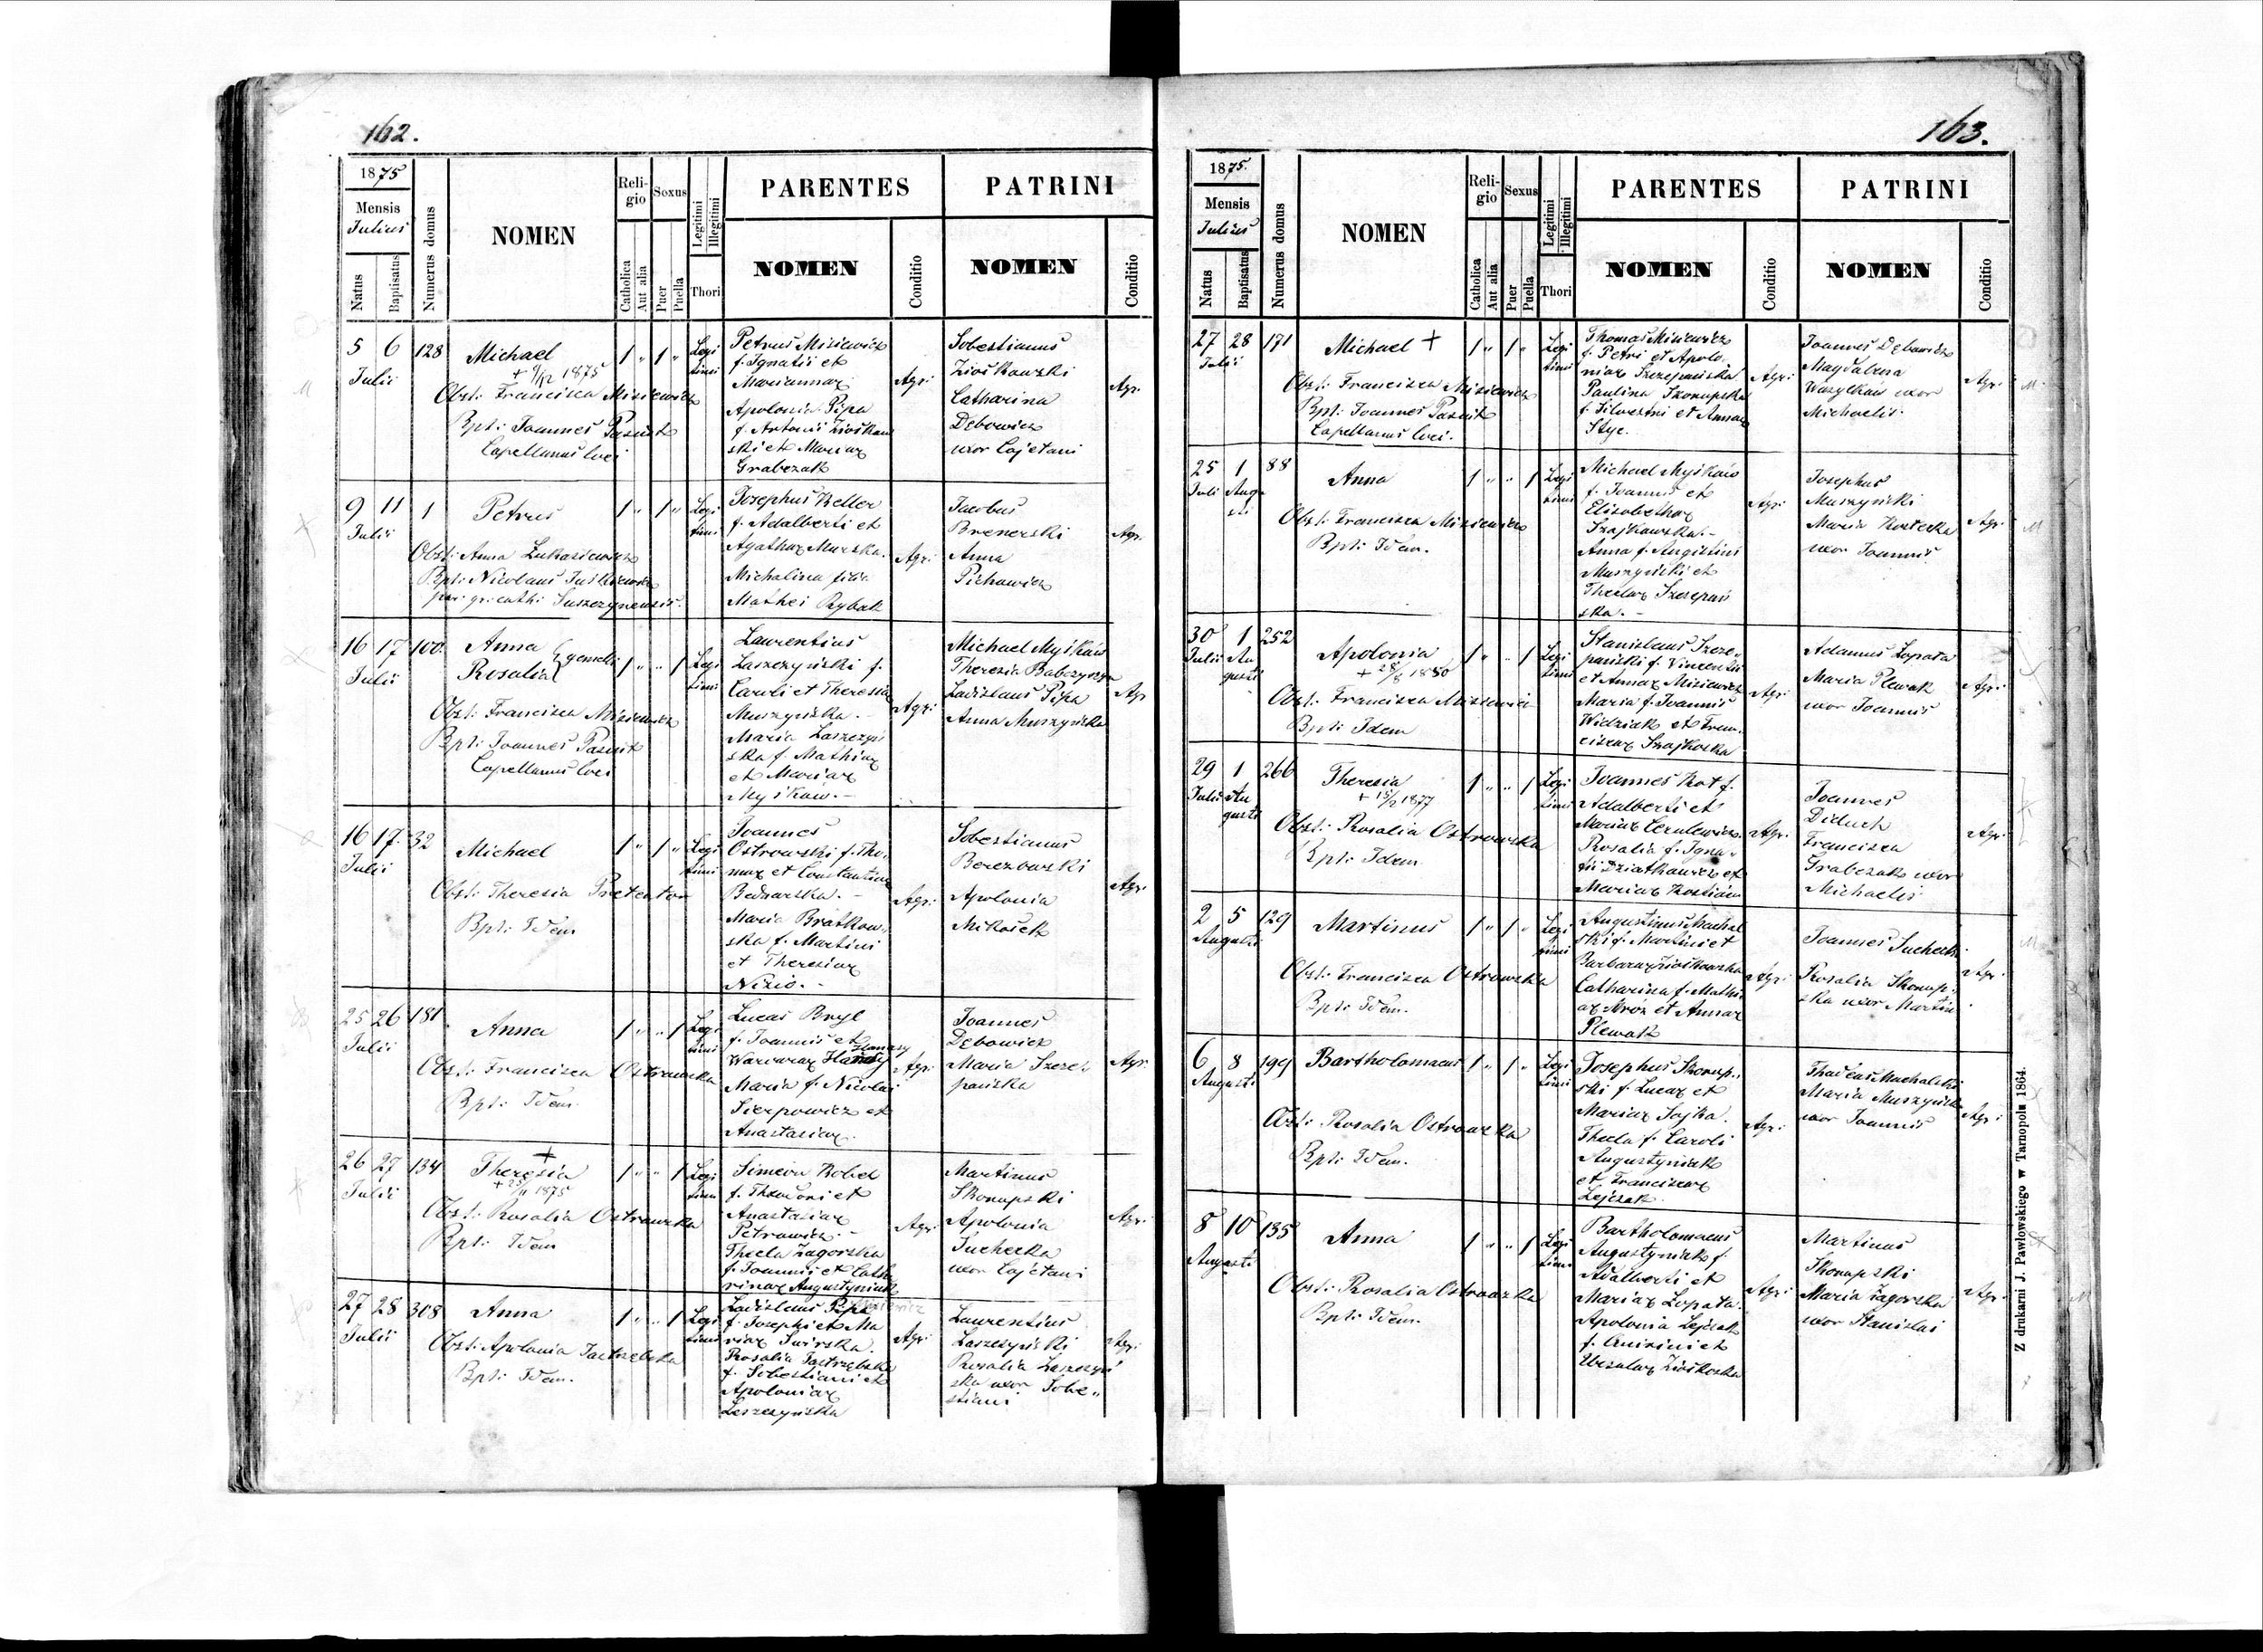 162.
1875
Mensis
Julius
Natus
Baptisatus
Numerus domus
NOMEN
Reli-
gio
Catholica
Aut alia
Sexus
Puer
Puella
Legitimi
Illegitimi
Thori
PARENTES
NOMEN
Conditio
PATRINI
NOMEN
Conditio
5 6 128
Julii
Michael
+ 9/12 1875
Obst: Francisca Misiewicz
Bpt: Joannes Pasiut
Capellanus loci
1 " 1 "
Legi
timi
Petrus Misiewicz
f. Ignatii et
Mariannae
Apolonia Pipa
f. Antonii Ziółkow
ski et Mariae
Grabczak
Agri:
Sobestianus
Ziółkowski
Catharina
Dębowicz
uxor Cajetani
Agr.
9 11 1
Julii
Petrus
Obst: Anna Łukasiewicz
Bpt: Nicolaus
par. gr. cathi Suszczynensis.
1 " 1 "
Legi
timi
Josephus Keller
f. Adalberti et
Agathae Murska.
Michalina filia
Mathei Rybak
Agr:
Jacobus
Brenerski
Anna
Pichowicz
Agr.
16 17 100
Julii
Anna
Rosalia
gemelli
Obst: Francisca Misiewicz
Bpt: Joannes Pasiut
Capellanus loci
1 " " 1
Legi
timi
Laurentius
Laszczyński f.
Caroli et Theresiae
Muszyńska. -
Maria Laszczyń
ska f. Mathiae
et Mariae
Myśków. -
Agr:
Michael Myśków
Theresia Babczyszyn
Ladislaus Pipa
Anna Muszyńska
Agr
16 17 32
Julii
Michael
Obst: Theresia Pretentor
Bpt: Idem
1 " 1 "
Legi
timi
Joannes
Ostrowski f. Tho,
mae et Constantiae
Bednarska. -
Maria Bratkow,
ska f. Martini
et Theresiae
Nizio. -
Agr:
Sobestianus
Berezowski
Apolonia
Mikosek
Agr:
25 26 181
Julii
Anna
Obst: Francisca Ostrowska
Bpt: Idem.
1 " " 1
Legi
timi
Lucas Bryl
f. Joannis et
Warvarae
Maria f. Nicolai
Sierpowicz et
Anastasiae.
Agr:
Joannes
Dębowicz
Maria Szcze,
pańska
Agr:
26 27 134
Julii
Theresia
+ 25/11 1875
Obst: Rosalia Ostrowska
Bpt: Idem
1 " " 1
Legi
timi
Simeon Kobel
f. Theodori et
Anastasiae
Petrowicz. -
Thecla Zagorska
f. Joannis et Catha
rinae Augustyniak
Agr:
Martinus
Skorupski
Apolonia
Suchecka
uxor Cajetani
Agr:
27 28 308
Julii
Anna
Obst: Apolonia Jastrzębska
Bpt: Idem.
1 " " 1
Legi
timi
Ladislaus Pipa
f. Josephi et Ma
riae Swirska.
Rosalia Jastrzębska
f. Sobestiani et
Apoloniae
Leszczyńska
Agr:
Laurentius
Laszczyński
Rosalia Laszczyń
ska uxor Sobe,,
stiani
Agr:
163.
1875.
Mensis
Julius
Natus
Baptisatus
Numerus domus
NOMEN
Reli-
gio
Catholica
Aut alia
Sexus
Puer
Puella
Legitimi
Illegitimi
Thori
PARENTES
NOMEN
Conditio
PATRINI
NOMEN
Conditio
27 28 171
Julii
Michael +
Obst: Francisca Misiewicz
Bpt: Joannes Pasiut
Capellanus loci.
1 " 1 "
Legi
timi
Thomas Misiewicz
f. Petri et Apolo,
niae Szczepańska
Paulina Skorupska
f. Silvestri et Annae
Styc.
Agr:
Joannes Dębowicz
Magdalena
Wasylków uxor
Michaelis.
Agr:
25 1 88
Juli Augu
sti
Anna
Obst: Francisca Misiewicz
Bpt: Idem.
1 " " 1
Legi
timi
Michael Myśków
f. Joannis et
Elisabethae
Szajkowska. -
Anna f. Augustini
Muszyński et
Theclae Szczepań
ska. -
Agr:
Josephus
Muszyński
Maria
uxor Joannis
Agr:
30 1 252
Julii Au
gusti
Apolonia
+ 28/8 1880
Obst: Francisca Misiewicz
Bpt: Idem
1 " " 1
Legi
timi
Stanislaus Szcze,
pański f. Vincentii
et Annae Misiewicz
Maria f. Joannis
Widziak et Fran,
ciscae Szajkoska
Agr:
Adamus Łopata
Maria Plewak
uxor Joannis
Agr:
29 1 266
Julii Au
gusti
Theresia
+ 15/2 1877
Obst: Rosalia Ostrowska
Bpt: Idem
1 " " 1
Legi
timi
Joannes Kot f.
Adalberti et
Mariae
Rosalia f. Igna,
tii Dziatkowicz et
Mariae
Agr:
Joannes
Diduch
Francisca
Grabczak uxor
Michaelis
Agr:
2 5 129
Augusti
Martinus
Obst: Francisca Ostrowska
Bpt: Idem.
1 " 1 "
Legi
timi
Augustinus Machal
ski f. Martini et
Barbarae Ziółkowska
Catharina f. Mathi,
ae Mróz et Annae
Plewak
Agr:
Joannes Suchecki
Rosalia Skorup,
ska uxor Martini
Agr:
6 8 199
Augusti
Bartholomaeus
Obst: Rosalia Ostrowska
Bpt: Idem.
1 " 1 "
Legi
timi
Josephus Skorup,
ski f. Lucae et
Mariae Sojka.
Thecla f. Caroli
Augustyniak
et Franciscae
Lejczak.
Agr:
Thadeus Machalski
Maria Muszyńska
uxor Joannis
Agr:
8 10 135
Augusti
Anna
Obst: Rosalia Ostrowska
Bpt: Idem.
1 " " 1
Legi
timi
Bartholomaeus
Augustyniak f.
Adalberti et
Mariae Łopata.
Apolonia Lejczak
f. Quirini et
Ursulae Ziółkoska
Agr:
Martinus
Skorupski
Maria Zagorska
uxor Stanislai
Agr:
Z drukarni J. Pawłowskiego w Tarnopolu 1864.